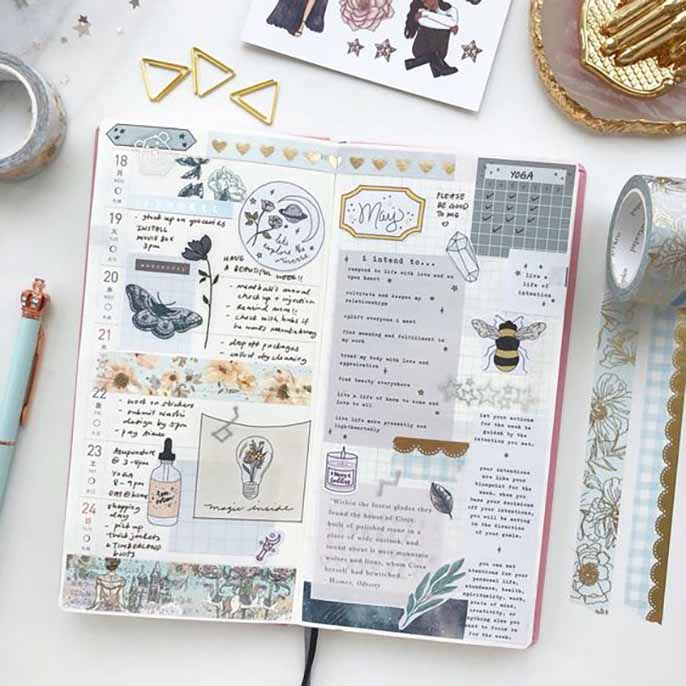 18
月
MON
19
火
- stock up on groceries
INSTALL
MOVIE BOX
3pm
like
explore the
universe
20
水
wednesday
HAVE
A BEAUTIFUL WEEK!!
- meatball's annual
check up + injection
- check with hubs if
21
木
- drop off packages
- collect dry cleaning
22
金
- work on stickers
- submit washi
design by 5pm
23
土
Acupuncture
@ 3-4pm
YOGA
8-9pm
24
日
shopping
day
- pick up
thick socks
& TIMBERLAND
boots
magic inside
May
PLEASE
BE GOOD
TO ME
YOGA
i intend to...
respond to life with love and an
open heart
cultivate and deepen my
relationships
uplift everyone i meet
find meaning and fulfillment in
my work
treat my body with love and
appreciation
find beauty everywhere
live a life of
love to all
live life more presently and
lightheartedly
live a
life of
intention
let your actions
for the week be
guided by the
intention you set.
your intentions
are like your
blueprint for the
week. when you
base your decisions
off your intentions,
you will be moving
in the direction
of your goals.
you can set
intentions for your
personal life,
abundance, health,
spirituality, work,
state of mind,
creativity, or
anything else you
want to focus on
for the week.
"Within the forest glades they
found the house of Circe
built of polished stone in a
place of wide outlook, and
round about it were mountain
wolves and lions, whom Circe
herself had bewitched..."
- Homer, Odyssey